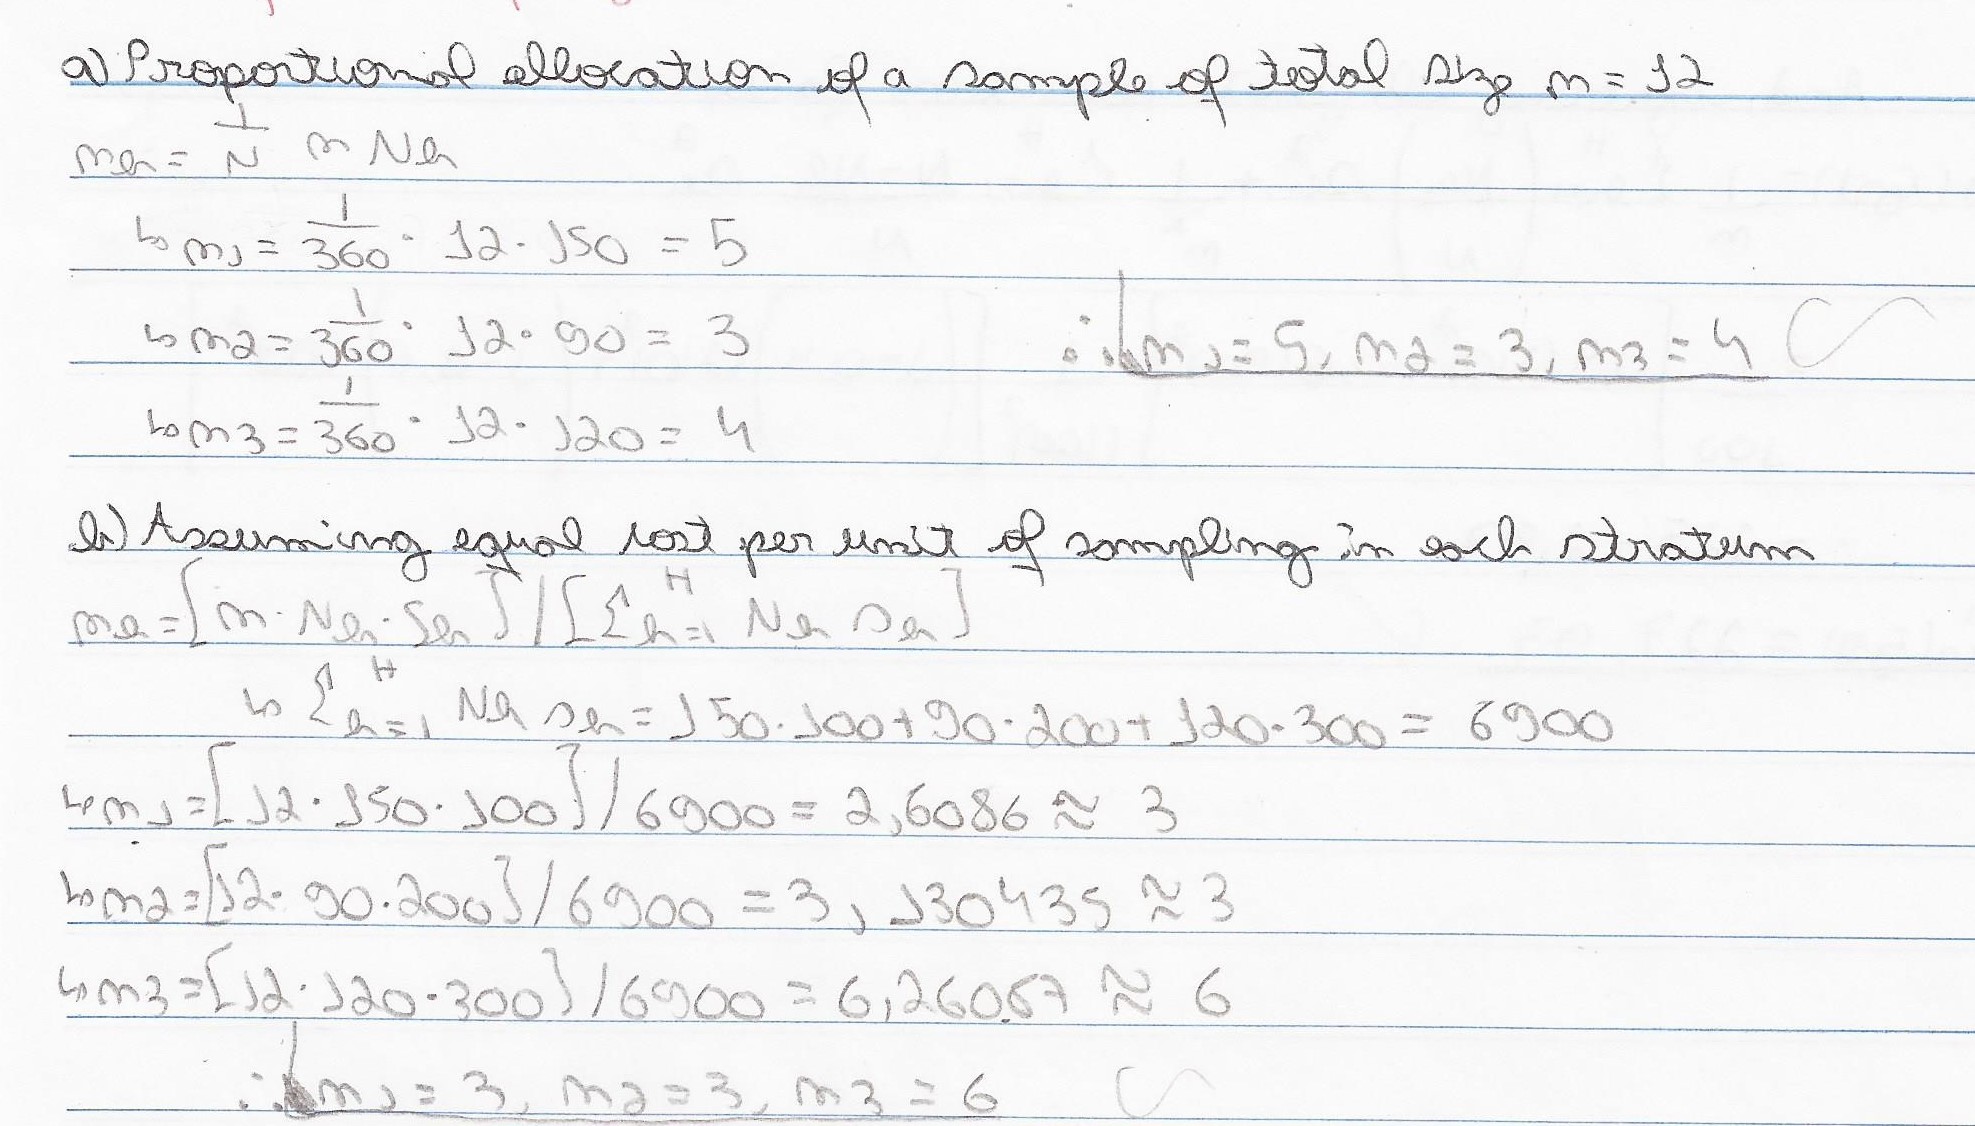 a) Proportional allocation of a sample of total size n = 12
nh = 1/N n Nh
↳ n1 = 1/360 · 12 · 150 = 5
↳ n2 = 1/360 · 12 · 90 = 3
∴ n1 = 5, n2 = 3, n3 = 4
↳ n3 = 1/360 · 12 · 120 = 4
b) Assuming equal cost per unit of sampling in each stratum
nh = [n · Nh · Sh] / [Σ h=1 H Nh sh]
↳ Σ h=1 H Nh sh = 150 · 100 + 90 · 200 + 120 · 300 = 6900
↳ n1 = [12 · 150 · 100] / 6900 = 2,6086 ≈ 3
↳ n2 = [12 · 90 · 200] / 6900 = 3,130435 ≈ 3
↳ n3 = [12 · 120 · 300] / 6900 = 6,26067 ≈ 6
∴ n1 = 3, n2 = 3, n3 = 6